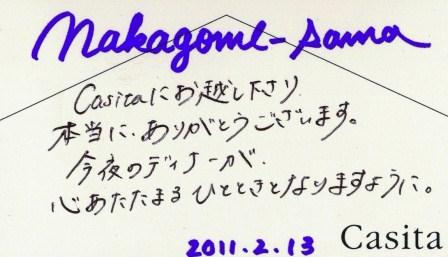 Nakagome-sama
Casitaにお越し下さり
本当に、ありがとうございます。
今夜のディナーが、
心あたたまるひとときとなりますように。
2011.2.13 Casita